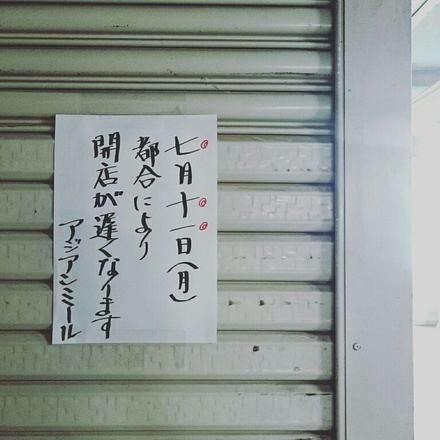 七月十一日(月)
都合により
開店が遅くなります
アジアンミール